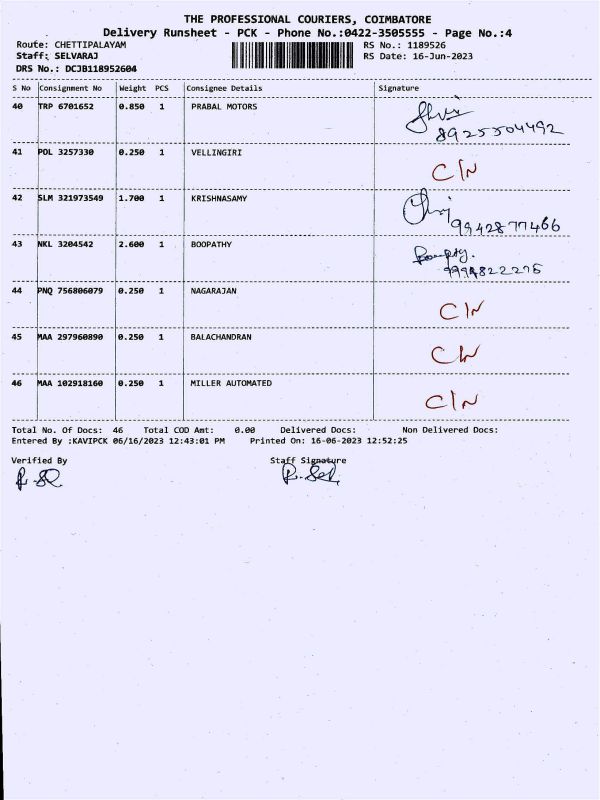 THE PROFESSIONAL COURIERS, COIMBATORE
Delivery Runsheet - PCK - Phone No.:0422-3505555 - Page No.:4
Route: CHETTIPALAYAM RS No.: 1189526
Staff: SELVARAJ RS Date: 16-Jun-2023
DRS No.: DCJB118952604
S No Consignment No Weight PCS Consignee Details Signature
40 TRP 6701652 0.850 1 PRABAL MOTORS
8925504492
41 POL 3257330 0.250 1 VELLINGIRI
C/N
42 SLM 321973549 1.700 1 KRISHNASAMY
9942877466
43 NKL 3204542 2.600 1 BOOPATHY
44 PNQ 756806079 0.250 1 NAGARAJAN
C/N
45 MAA 297960890 0.250 1 BALACHANDRAN
C/N
46 MAA 102918160 0.250 1 MILLER AUTOMATED
C/N
Total No. Of Docs: 46 Total COD Amt: 0.00 Delivered Docs: Non Delivered Docs:
Entered By :KAVIPCK 06/16/2023 12:43:01 PM Printed On: 16-06-2023 12:52:25
Verified By Staff Signature